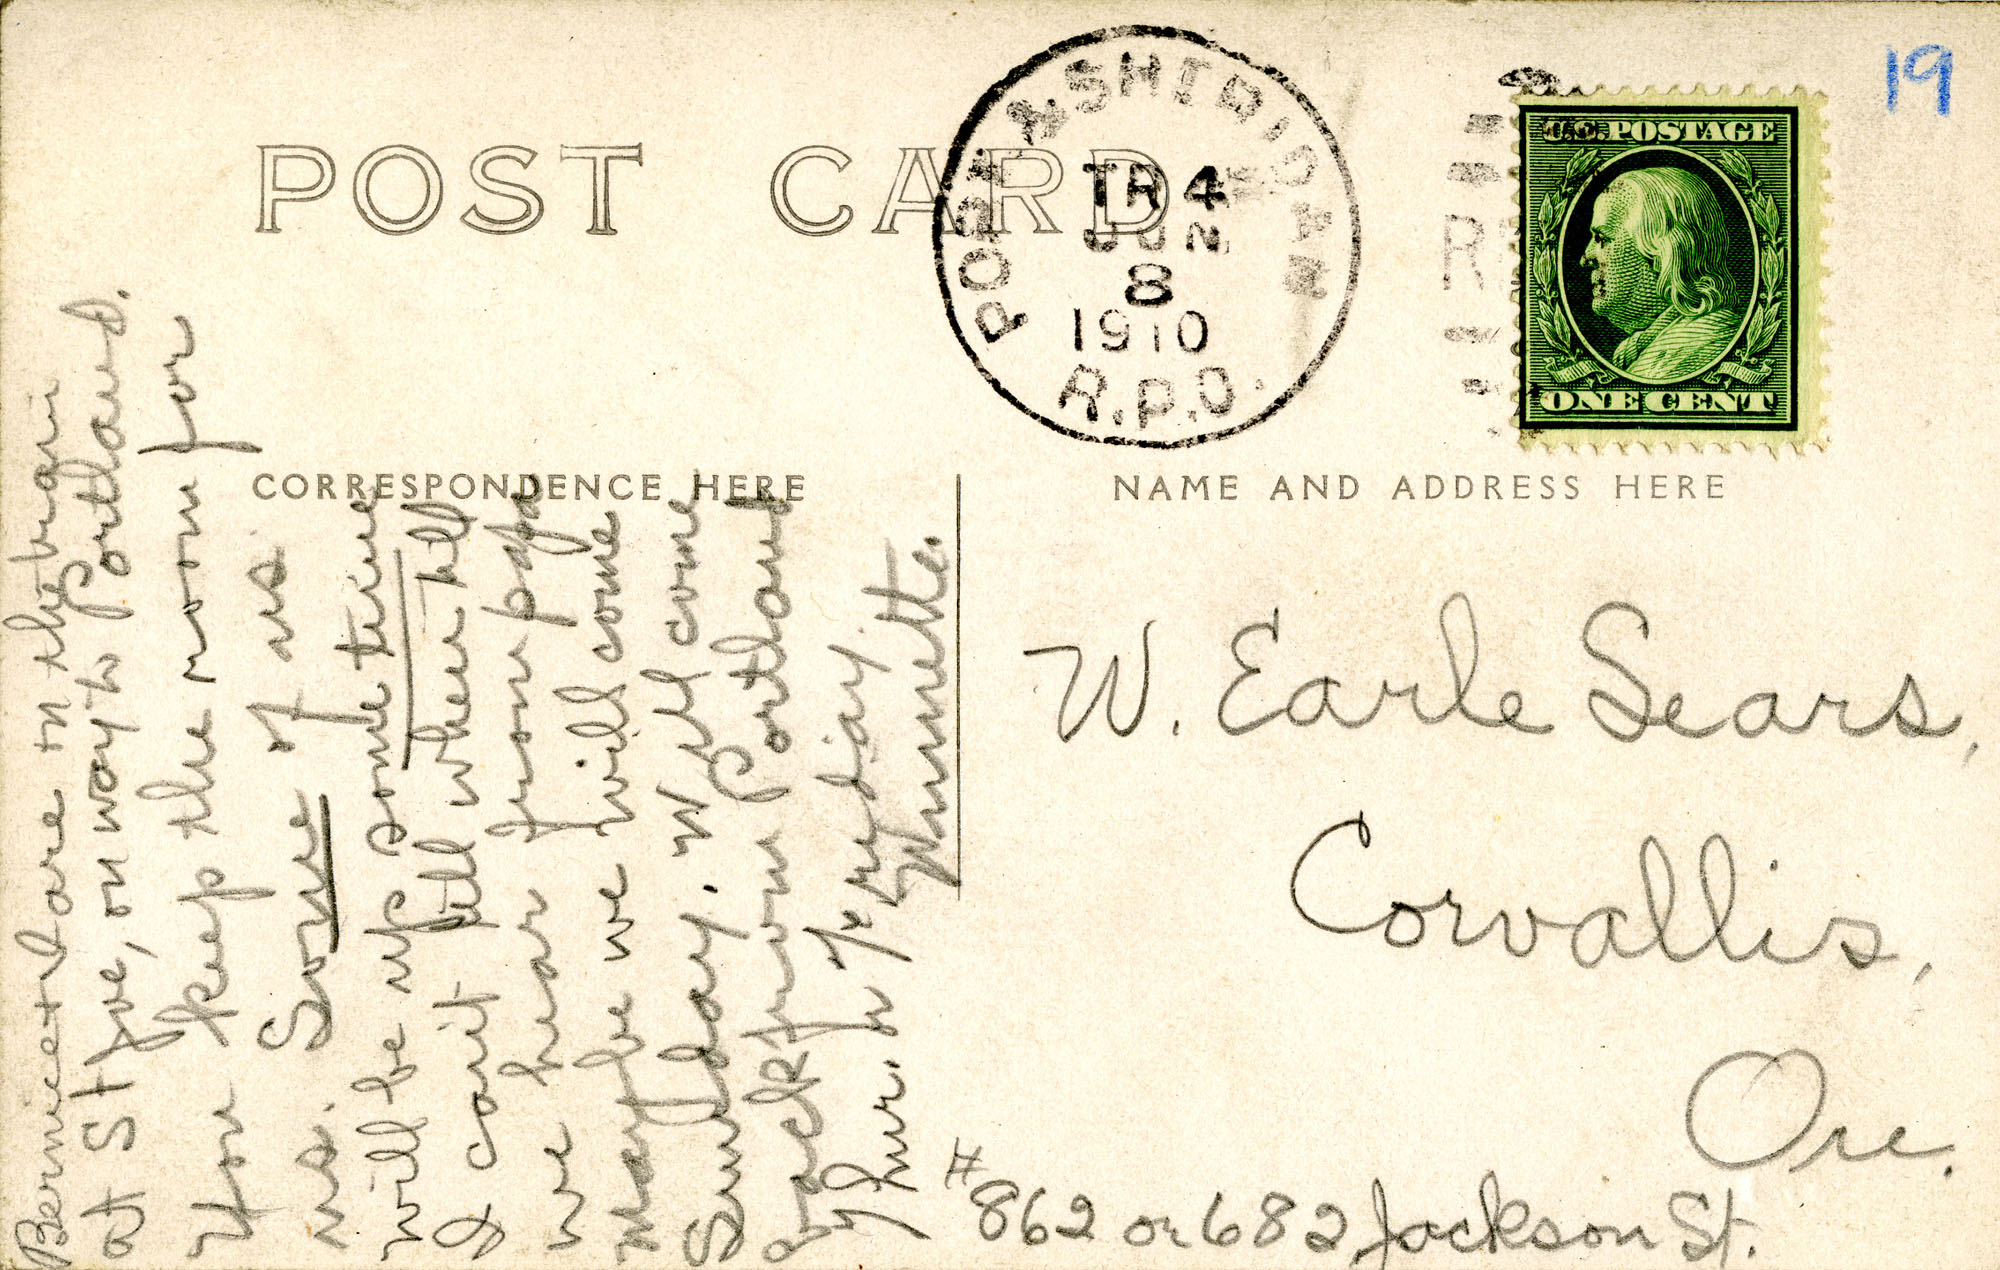 POST CARD
PORT. & SHERIDAN
TR 4
JUN
8
1910
R.P.O.
U.S. POSTAGE
ONE CENT
19
CORRESPONDENCE HERE
NAME AND ADDRESS HERE
Bernice & I are on the train
at St Joe, on way to Portland.
You keep the room for
some of us
us. Some of us
will be up some time
I can't tell when till
we hear from papa
Maybe we will come
Sunday. Will come
back from Portland
Thur. or Friday.
Winnette.
W. Earle Sears,
Corvallis,
Ore.
#862 or 682 Jackson St.